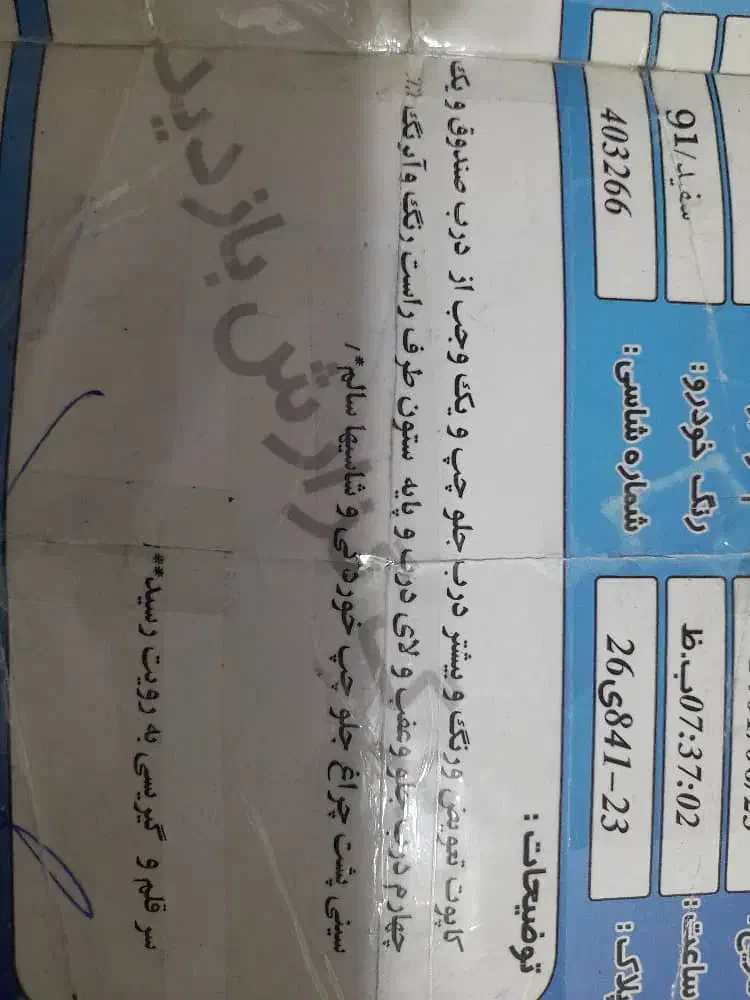 سفید/91
رنگ خودرو:
07:37:02ب.ظ
ساعت:
403266
شماره شاسی:
26ی841-23
پلاک:
توضیحات:
کاپوت تعویض ورنگ و بیشتر درب جلو چپ و یک وجب از درب صندوق و یک
چهارم درب جلو وعقب و لای درب و پایه ستون طرف راست رنگ وآبرنگ
سینی پشت چراغ جلو چپ خوردگی و شاسیها سالم*/
سر قلم و گیریسی به رویت رسید**/
گزارش بازدید